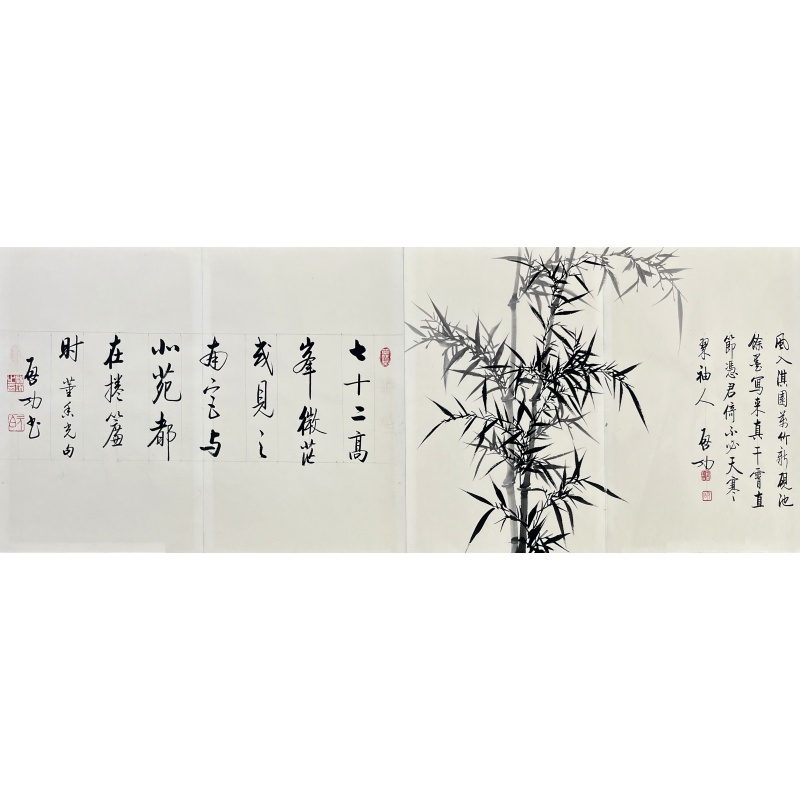 七十二高
峯微茫
或見之
南宫与
北苑都
在捲簾
时 董香光句
啟功书
風入淇園萬竹新硯池
餘墨寫来真干霄直
節憑君倚不必天寒
翠袖人 啟功